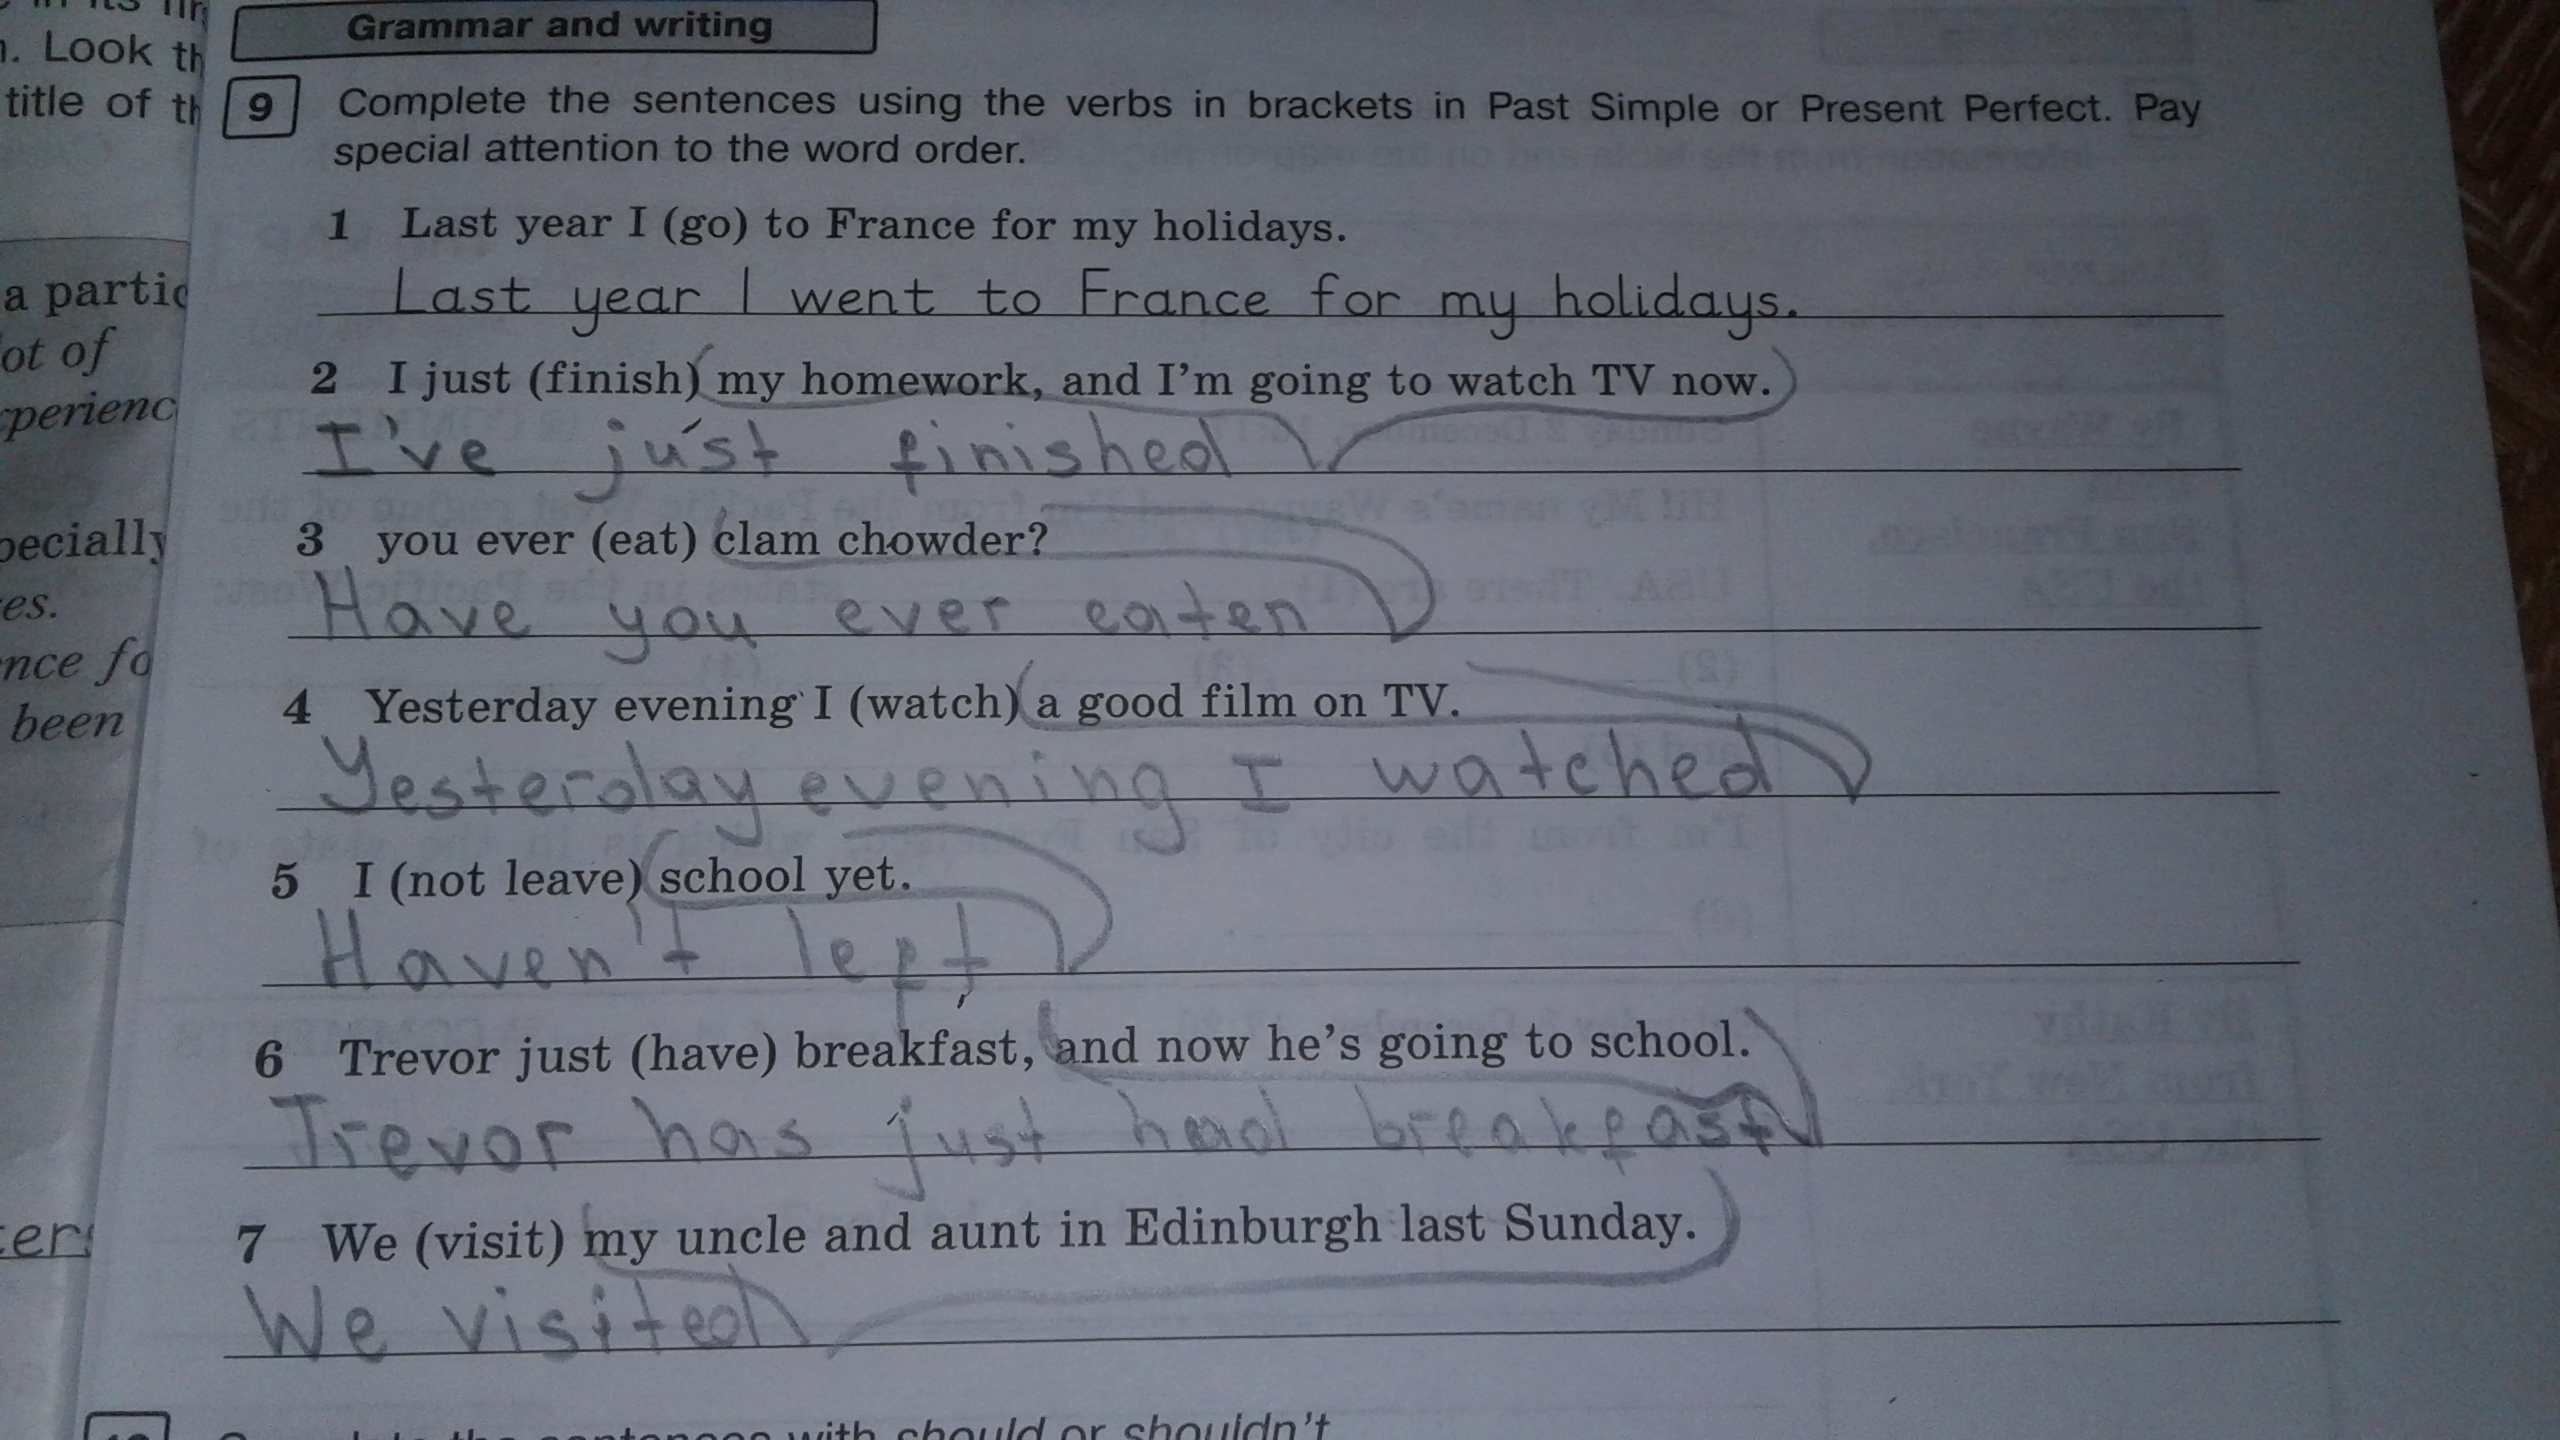 . Look th
title of th
a partic
ot of
perienc
pecially
es.
nce fo
been
ters
Grammar and writing
9 Complete the sentences using the verbs in brackets in Past Simple or Present Perfect. Pay
special attention to the word order.
1 Last year I (go) to France for my holidays.
Last year I went to France for my holidays.
2 I just (finish) my homework, and I'm going to watch TV now.
I've just finished
3 you ever (eat) clam chowder?
Have you ever eaten
4 Yesterday evening I (watch) a good film on TV.
Yesterday evening I watched
5 I (not leave) school yet.
Haven't left
6 Trevor just (have) breakfast, and now he's going to school.
Trevor has just had breakfast
7 We (visit) my uncle and aunt in Edinburgh last Sunday.
We visited
sentences with should or shouldn't